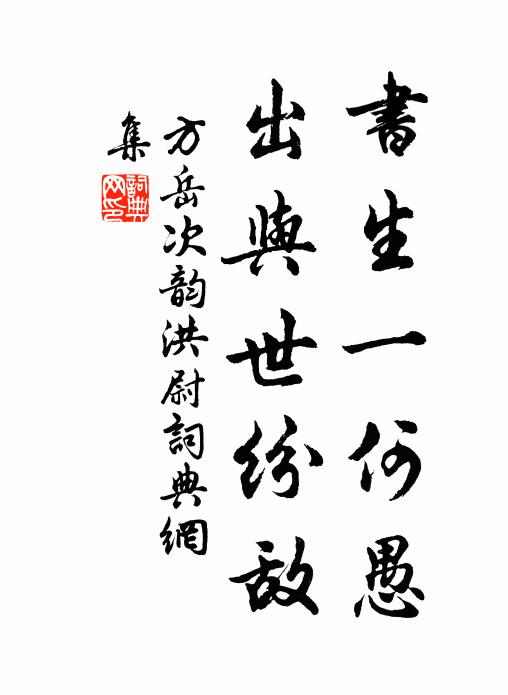 書生一何愚
出與世紛敵
方岳次韵洪尉詞典網
集
詞典網印